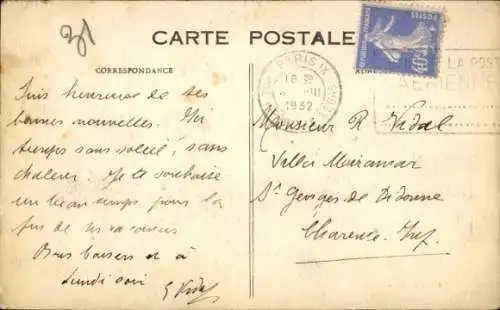 31
CARTE POSTALE
CORRESPONDANCE
PARIS IX
18
1932
POSTES
40c
LA POSTE
AÉRIENNE
Suis heureuse de ses
bonnes nouvelles. Ici
temps sans soleil, sans
chaleur. Je te souhaite
un beau temps pour la
fin de tes vacances
Bons baisers et à
Lundi soir
Vidal
Monsieur R. Vidal
Villa Miramar
St Georges de Didonne
Charente Inf.